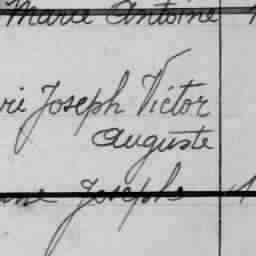 Marie Antoine
rie Joseph Victor
Auguste
Joseph